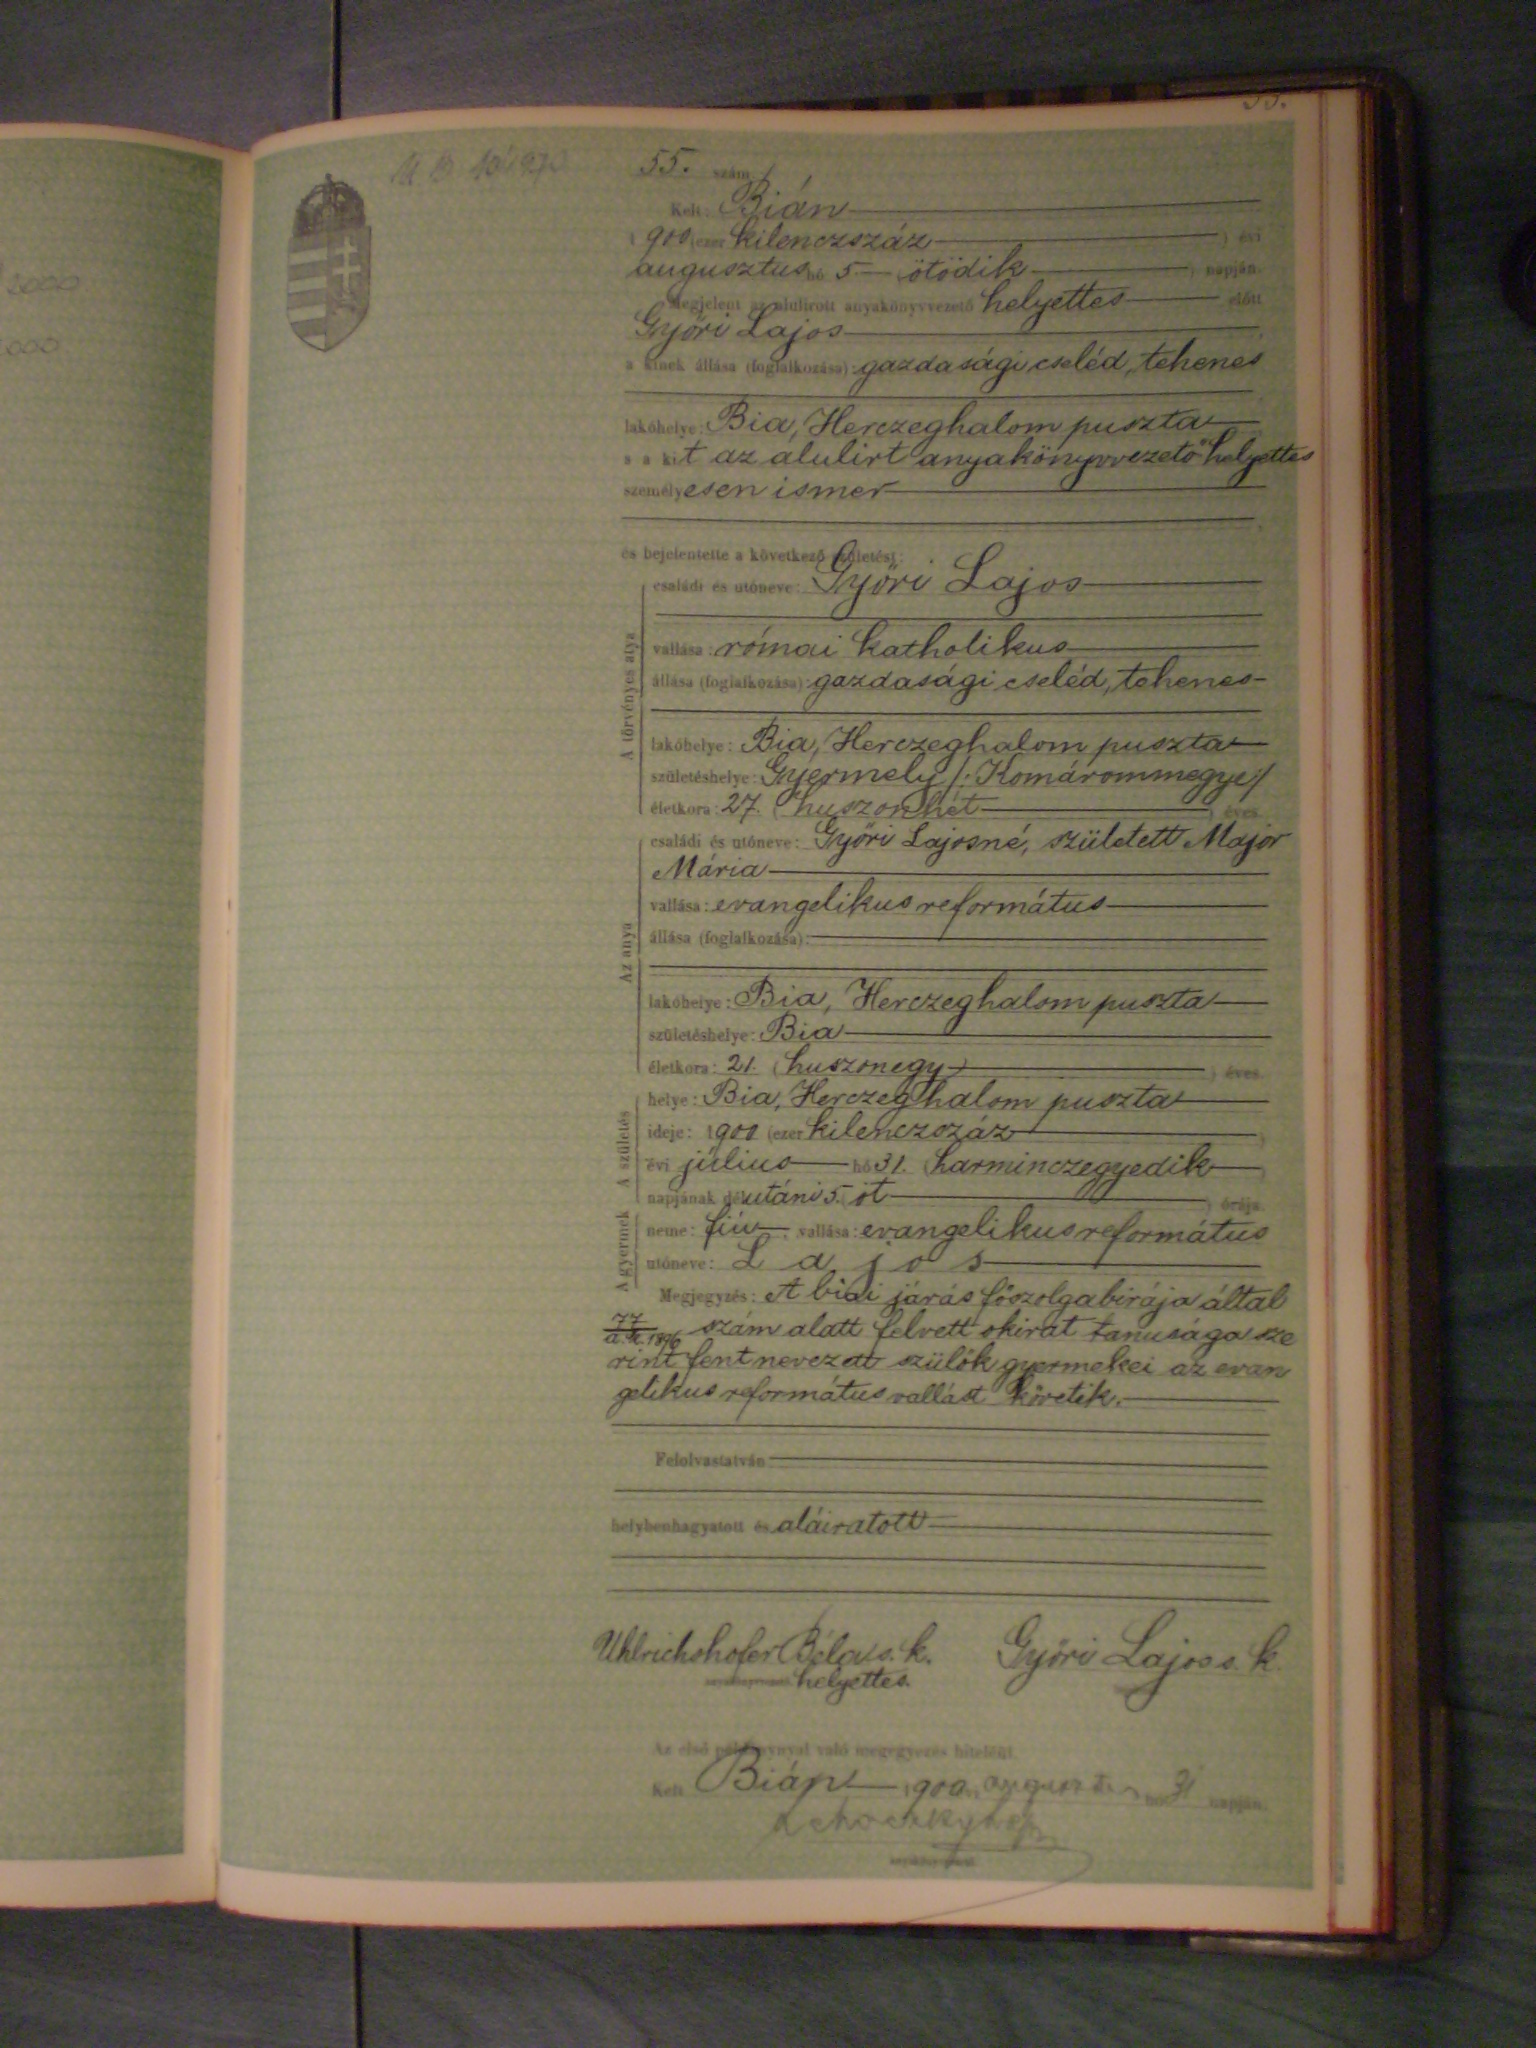 55.
2000
000
55. szám
Kelt: Bián
1900 (ezer kilenczszáz ) évi
augusztus hó 5 (ötödik ) napján.
Megjelent az alulirott anyakönyvvezető helyettes előtt
Győri Lajos
a kinek állása (foglalkozása): gazdasági cseléd, tehenes
lakóhelye: Bia, Herczeghalom puszta
s a kit az alulirt anyakönyvvezető helyettes
személyesen ismer
és bejelentette a következő születést:
A törvényes atya
családi és utóneve: Győri Lajos
vallása: római katholikus
állása (foglalkozása): gazdasági cseléd, tehenes
lakóhelye: Bia, Herczeghalom puszta
születéshelye: Gyermely /: Komárommegye :/
életkora: 27. (huszonhét ) éves
Az anya
családi és utóneve: Győri Lajosné, született Major
Mária
vallása: evangelikus református
állása (foglalkozása):
lakóhelye: Bia, Herczeghalom puszta
születéshelye: Bia
életkora: 21. (huszonegy ) éves
A születés
helye: Bia, Herczeghalom puszta
ideje: 1900 (ezer kilenczszáz )
évi július hó 31. (harminczegyedik )
napjának délutáni 5. (öt ) órája.
A gyermek
neme: fiú, vallása: evangelikus református
utóneve: Lajos
Megjegyzés: A biai járás főszolgabirája által
77 szám alatt felvett okirat tanusága sze
rint fent nevezett szülők gyermekei az evan
gelikus református vallást követik.
Felolvastatván
helybenhagyatott és aláiratott
Uhlrichshofer Béla s. k. Győri Lajos s. k.
helyettes.
Az első példánynyal való megegyezés hiteléül
Kelt Bián 1900 évi augusztus hó 31 napján.